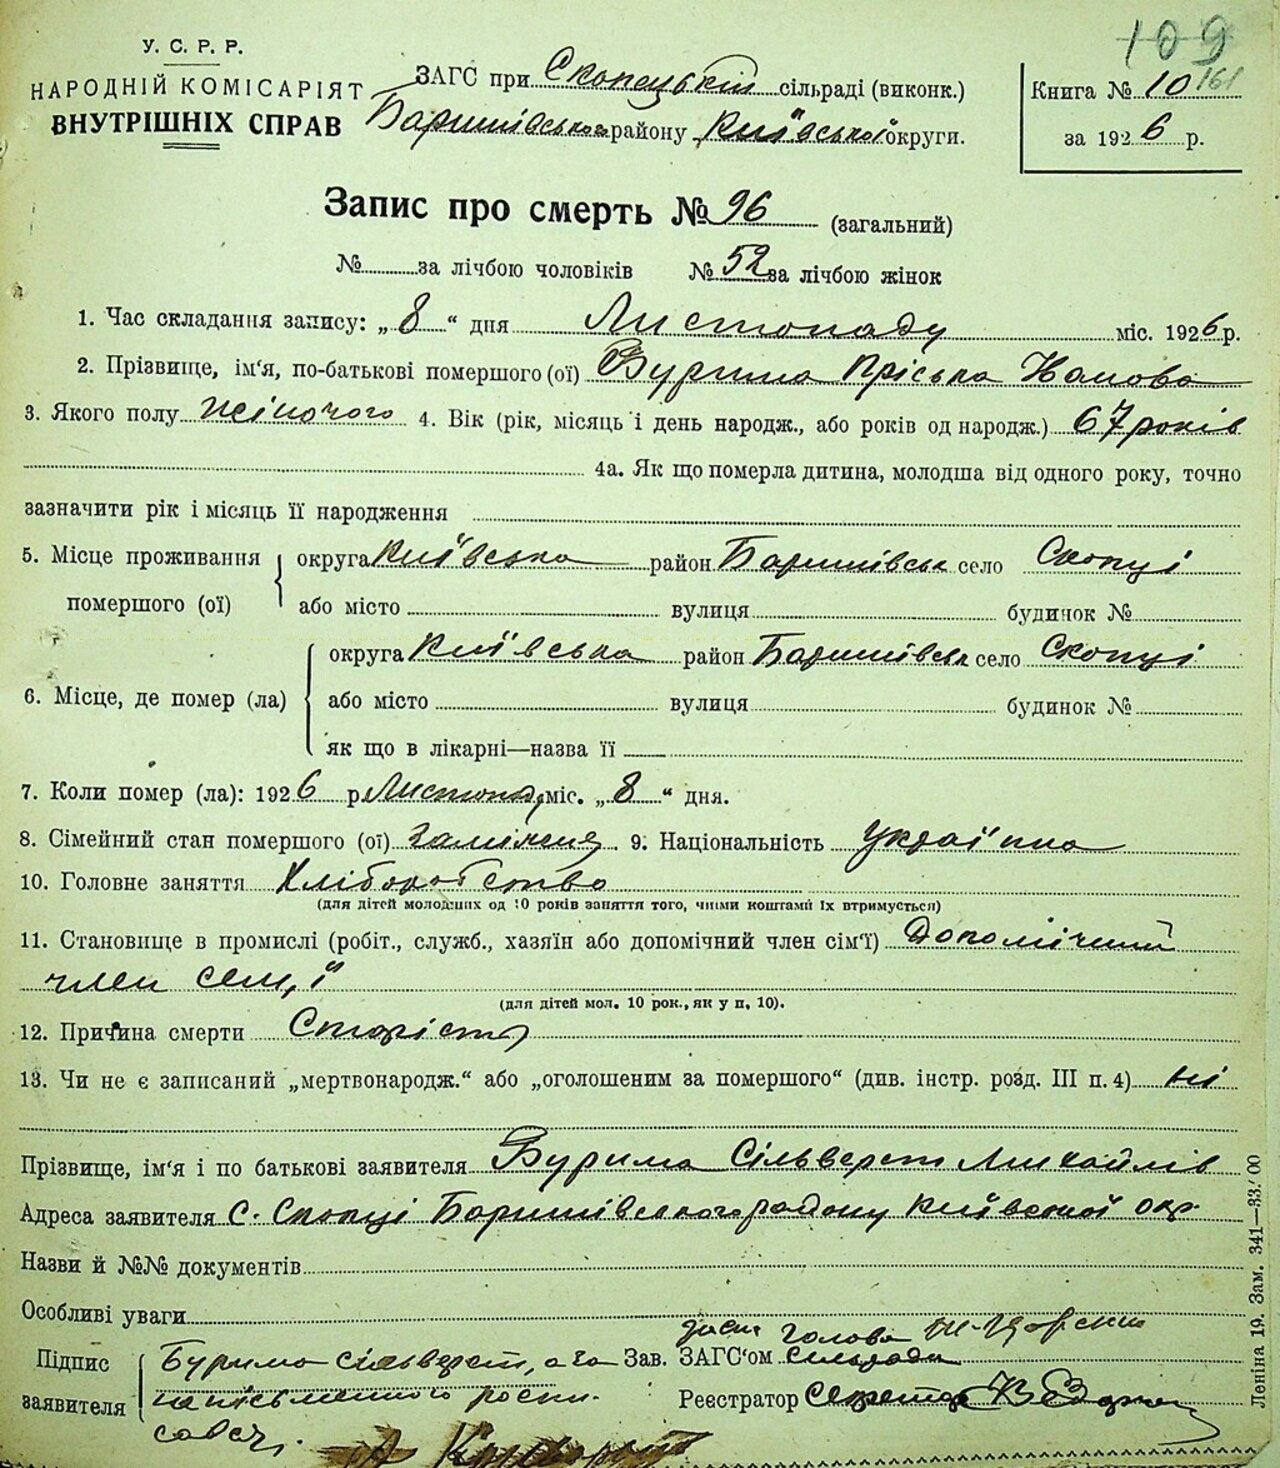 109
У. С. Р. Р.
НАРОДНІЙ КОМІСАРІЯТ
ВНУТРІШНІХ СПРАВ
ЗАГС при Скопецькій сільраді (виконк.)
Баришівського району Київської округи.
Книга № 10 161
за 1926 р.
Запис про смерть № 96 (загальний)
№ за лічбою чоловіків № 52 за лічбою жінок
1. Час складання запису: „8“ дня Листопаду міс. 1926 р.
2. Прізвище, ім'я, по-батькові помершого (ої) Бурима Пріська
3. Якого полу жіночого 4. Вік (рік, місяць і день народж., або років од народж.) 67 років
4а. Як що померла дитина, молодша від одного року, точно
зазначити рік і місяць її народження
5. Місце проживання помершого (ої) округа Київська район Баришівськ село Скопці
або місто вулиця будинок №
6. Місце, де помер (ла) округа Київська район Баришівськ село Скопці
або місто вулиця будинок №
як що в лікарні—назва її
7. Коли помер (ла): 1926 р. Листопад міс. „8“ дня.
8. Сімейний стан помершого (ої) Заміжня 9. Національність Українка
10. Головне заняття Хліборобство
(для дітей молодших од 10 років заняття того, чиїми коштами їх втримується)
11. Становище в промислі (робіт., служб., хазяїн або допомічний член сім'ї) Допомічний
член сем,ї
(для дітей мол. 10 рок., як у п. 10).
12. Причина смерти Старість
13. Чи не є записаний „мертвонародж.“ або „оголошеним за помершого“ (див. інстр. розд. III п. 4) ні
Прізвище, ім'я і по батькові заявителя Бурима Сільверст Михайлів
Адреса заявителя с. Скопці Баришівського району Київської окр.
Назви й №№ документів
Особливі уваги
Підпис заявителя Бурима сільверст, а за
Зав. ЗАГС'ом Голова сільради
Реєстратор Секретар
Леніна 19. Зам. 341—33.000